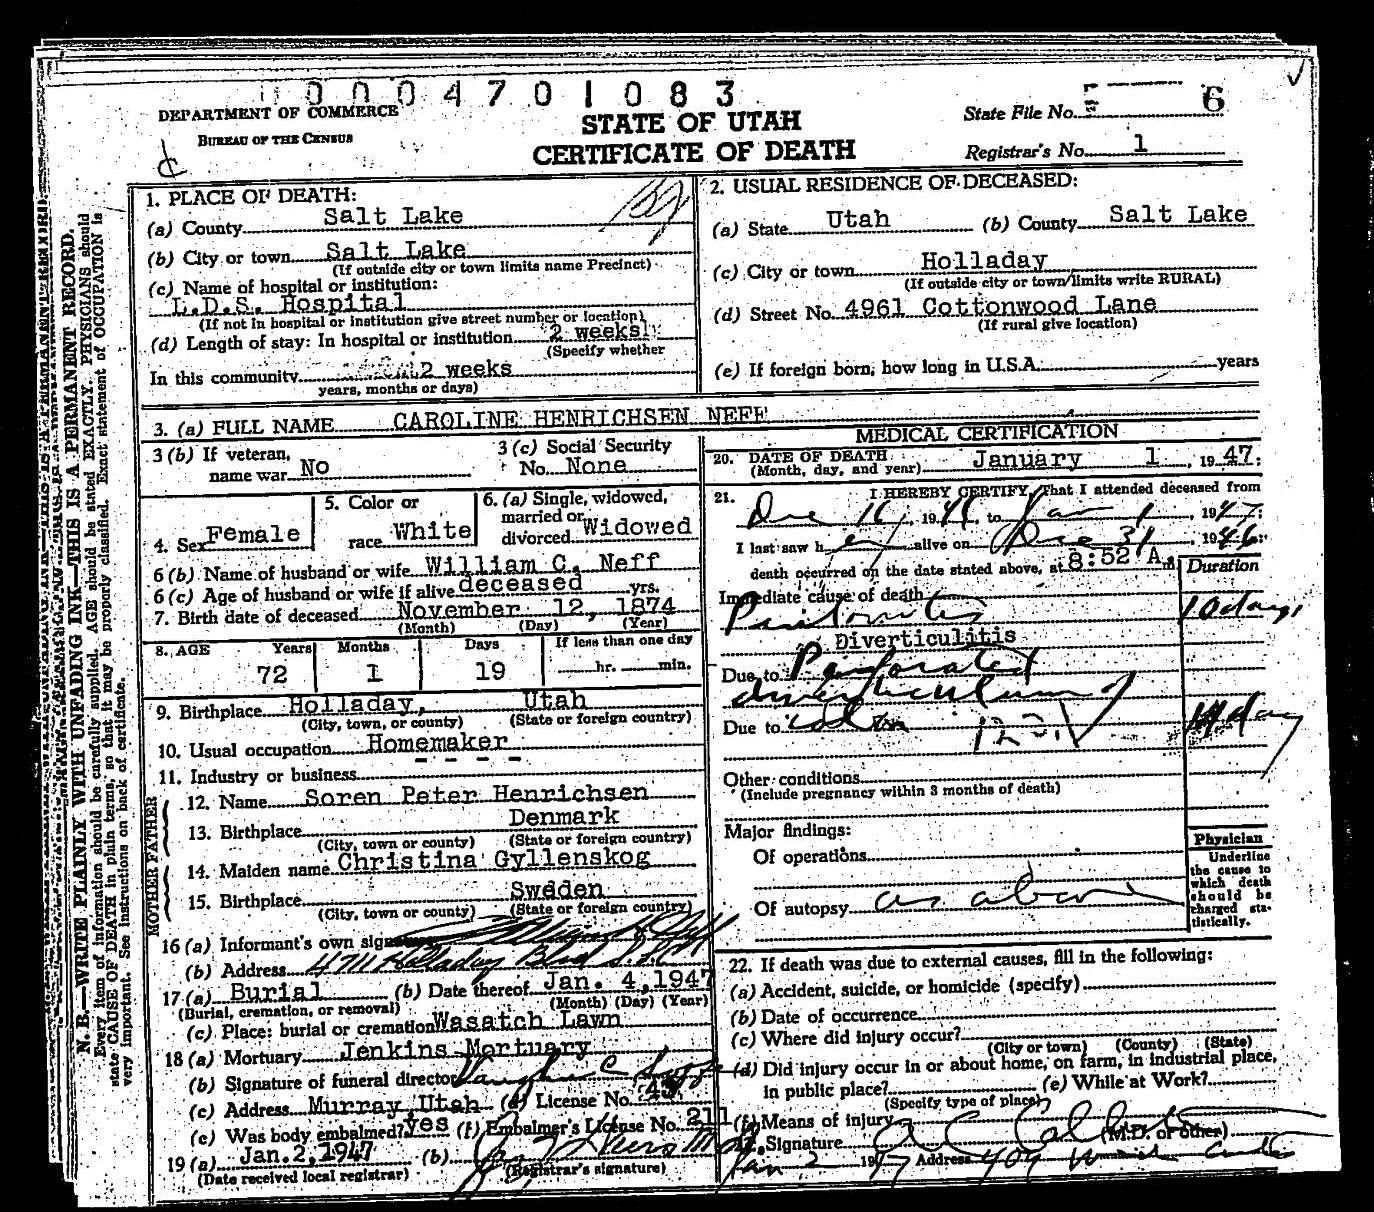 0004701083
DEPARTMENT OF COMMERCE
BUREAU OF THE CENSUS
STATE OF UTAH
CERTIFICATE OF DEATH
State File No. 6
Registrar's No. 1
1. PLACE OF DEATH:
(a) County Salt Lake
(b) City or town Salt Lake
(If outside city or town limits name Precinct)
(c) Name of hospital or institution:
L.D.S. Hospital
(If not in hospital or institution give street number or location)
(d) Length of stay: In hospital or institution 2 weeks
(Specify whether
In this community 2 weeks
years, months or days)
2. USUAL RESIDENCE OF DECEASED:
(a) State Utah (b) County Salt Lake
(c) City or town Holladay
(If outside city or town limits write RURAL)
(d) Street No. 4961 Cottonwood Lane
(If rural give location)
(e) If foreign born, how long in U.S.A. years
3. (a) FULL NAME CAROLINE HENRICHSEN NEFF
3 (b) If veteran, name war No
3 (c) Social Security No. None
4. Sex Female
5. Color or race White
6. (a) Single, widowed, married or divorced Widowed
6 (b) Name of husband or wife William C. Neff
6 (c) Age of husband or wife if alive deceased yrs.
7. Birth date of deceased November 12, 1874
(Month) (Day) (Year)
8. AGE Years Months Days If less than one day
72 1 19 hr. min.
9. Birthplace Holladay, Utah
(City, town, or county) (State or foreign country)
10. Usual occupation Homemaker
11. Industry or business
FATHER
12. Name Soren Peter Henrichsen
13. Birthplace Denmark
(City, town or county) (State or foreign country)
MOTHER
14. Maiden name Christina Gyllenskog
15. Birthplace Sweden
(City, town or county) (State or foreign country)
16 (a) Informant's own signature
(b) Address 4711 Holladay Blvd
17 (a) Burial (b) Date thereof Jan. 4, 1947
(Burial, cremation, or removal) (Month) (Day) (Year)
(c) Place: burial or cremation Wasatch Lawn
18 (a) Mortuary Jenkins Mortuary
(b) Signature of funeral director
(c) Address Murray, Utah (d) License No. 43
(e) Was body embalmed? yes (f) Embalmer's License No. 211
19 (a) Jan. 2, 1947 (b)
(Date received local registrar) (Registrar's signature)
MEDICAL CERTIFICATION
20. DATE OF DEATH
(Month, day, and year) January 1, 1947
21. I HEREBY CERTIFY, That I attended deceased from
Dec 16, 1946, to Jan 1, 1947;
I last saw her alive on Dec 31, 1946;
death occurred on the date stated above, at 8:52 A.m.
Duration
Immediate cause of death
Peritonitis 10 days
Diverticulitis
Due to Perforated
diverticulum of
Due to colon 14 days
Other conditions
(Include pregnancy within 3 months of death)
Major findings:
Of operations
Of autopsy as above
Physician
Underline the cause to which death should be charged statistically.
22. If death was due to external causes, fill in the following:
(a) Accident, suicide, or homicide (specify)
(b) Date of occurrence
(c) Where did injury occur?
(City or town) (County) (State)
(d) Did injury occur in or about home, on farm, in industrial place, in public place? (e) While at Work?
(Specify type of place)
(f) Means of injury
Signature (M.D. or other)
Jan 2 1947 Address 409
N. B.—WRITE PLAINLY WITH UNFADING INK—THIS IS A PERMANENT RECORD.
Every item of information should be carefully supplied. AGE should be stated EXACTLY. PHYSICIANS should
state CAUSE OF DEATH in plain terms, so that it may be properly classified. Exact statement of OCCUPATION is
very important. See instructions on back of certificate.